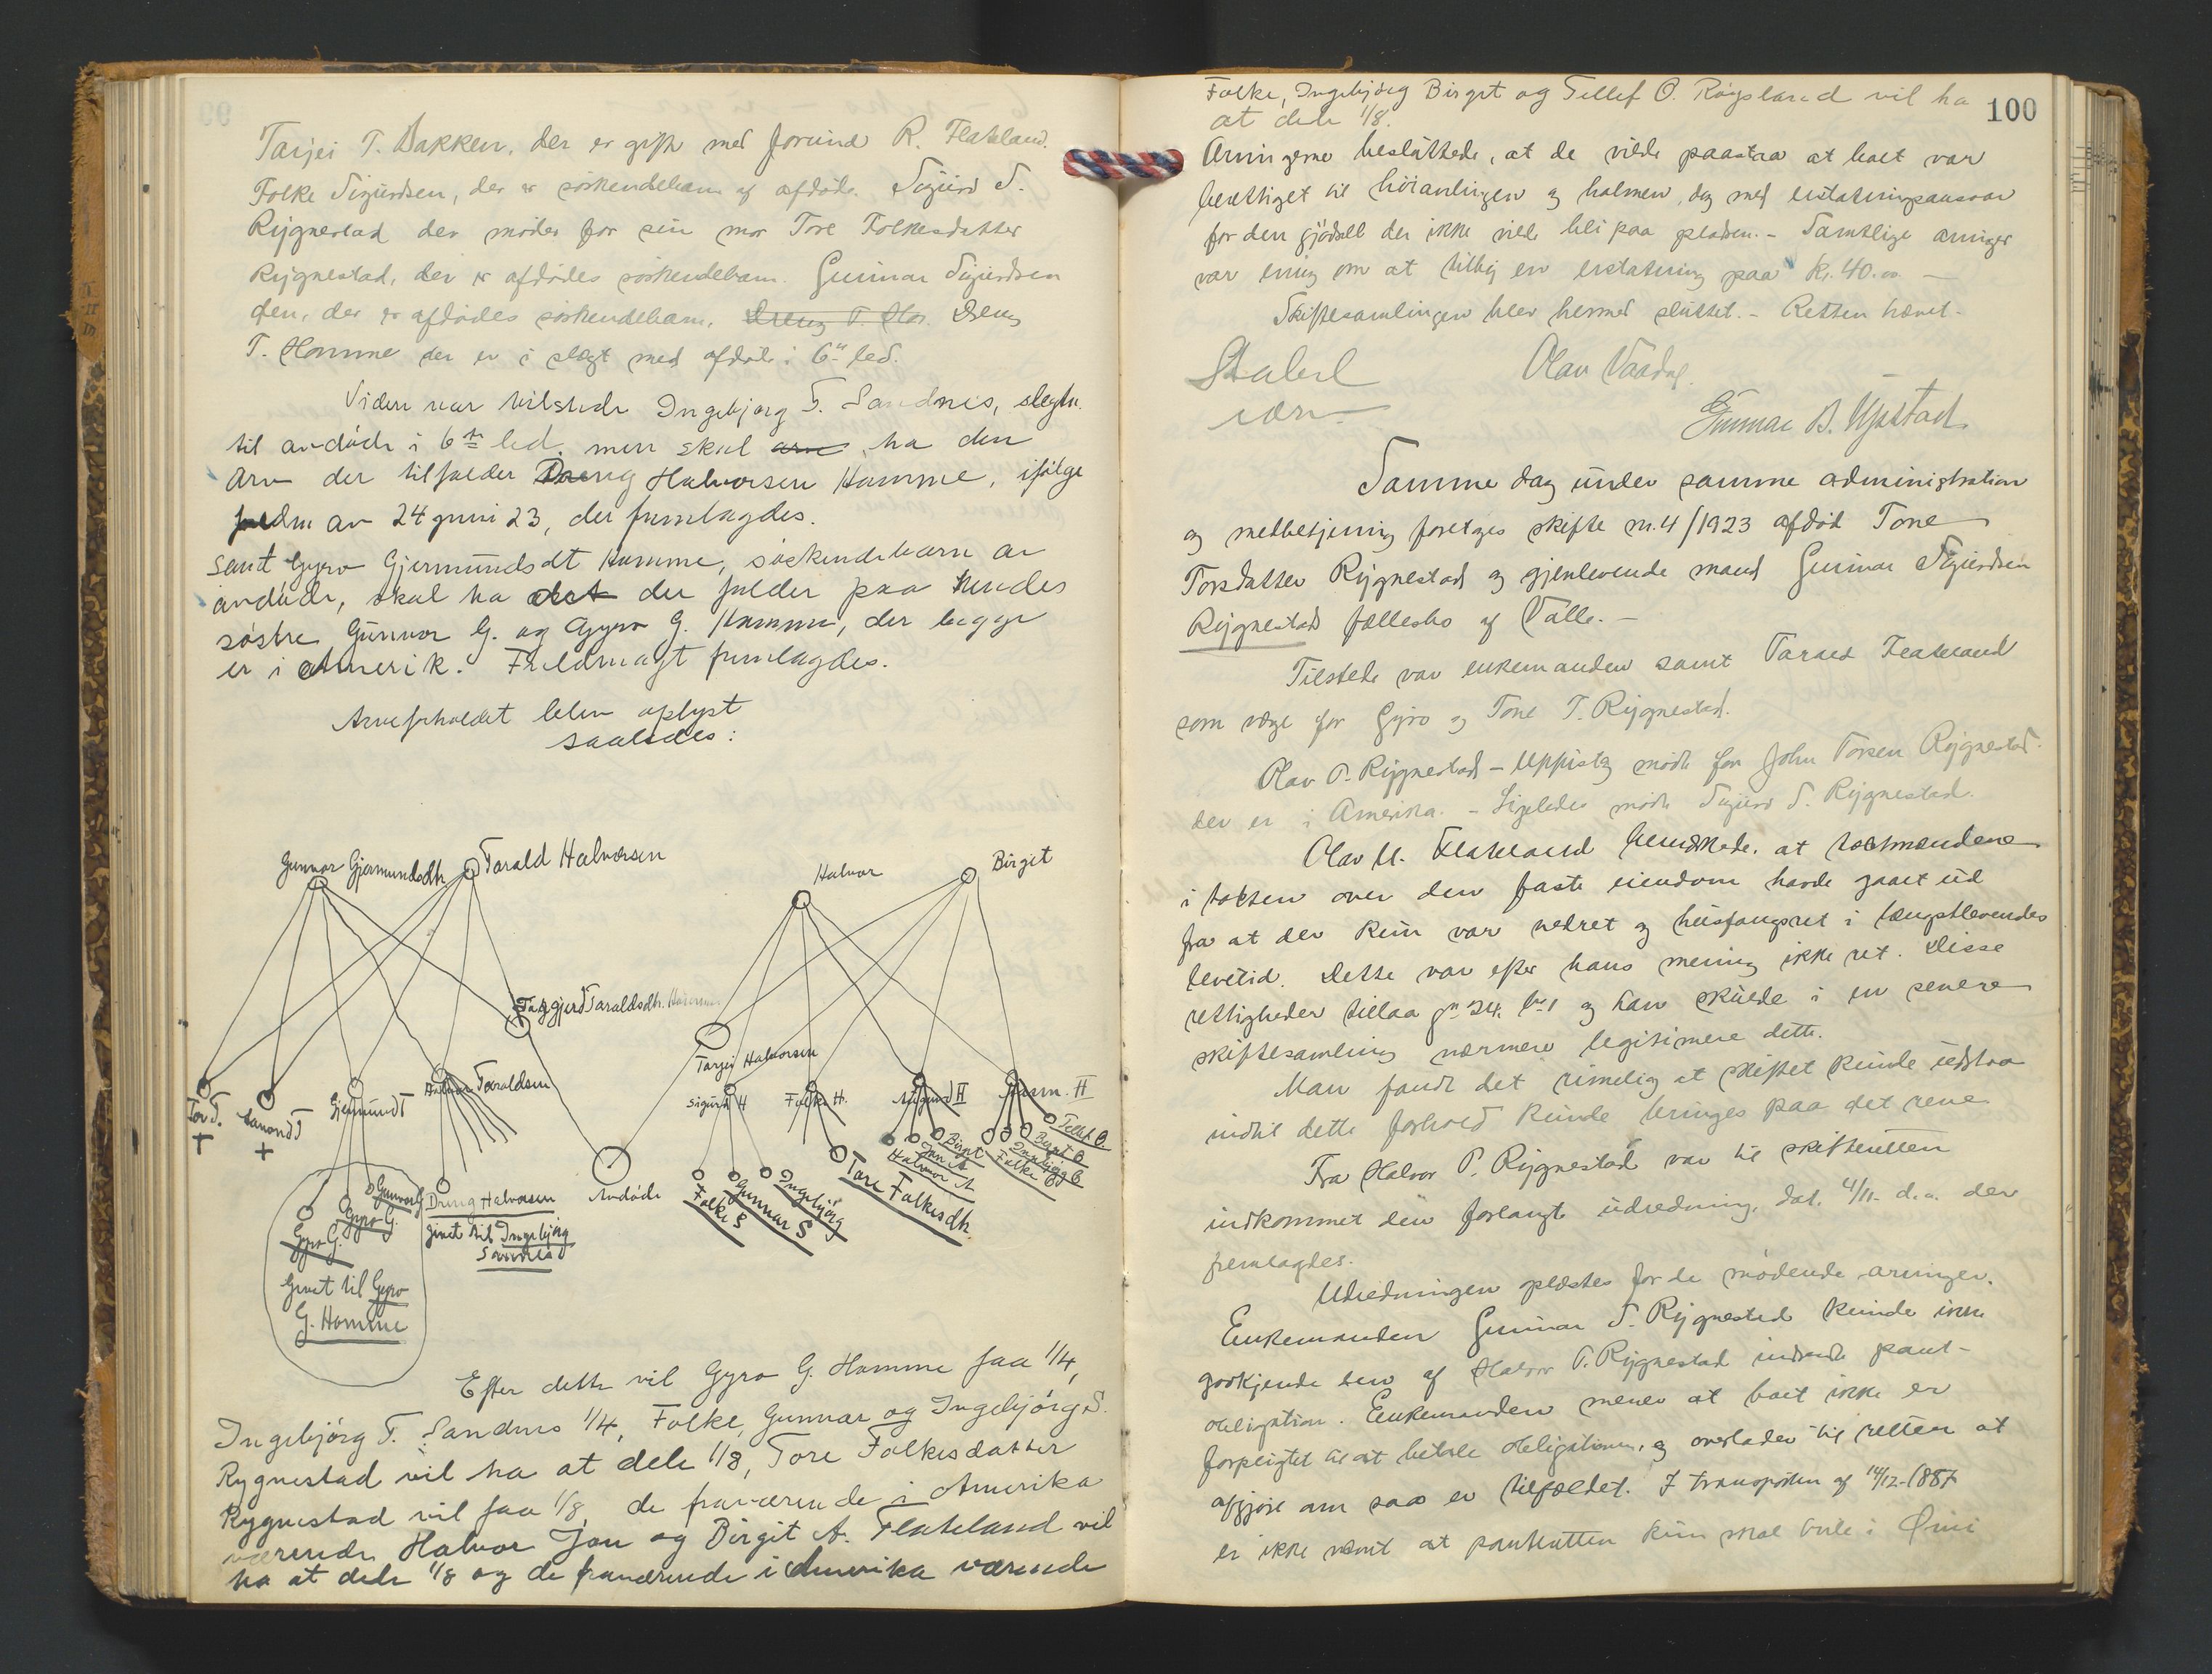 Tarjei T. Bakken, der er gift med Jorund R. Flateland.
Folke Sigurdsen, der er söskendebarn af afdöde. Sigurd S.
Rygnestad der möder for sin mor Tore Folkesdatter
Rygnestad, der er afdödes söskendebarn. Gunnar Sigurdsen
den, der er afdödes söskendebarn. Dreng T. Hor. Dreng
T. Homme der er i slægt med afdöde i 6te led.
Videre var tilstede Ingebjørg T. Sandnes, slegtn.
til avdöde i 6te led, men skal arv ha den
Arv der tilfalder Dreng Halvorsen Homme, ifölge
fuldm av 24 juni 23, der fremlagdes.
samt Gyro Gjermundsdt Homme, söskendebarn av
avdöde, skal ha det der falder paa hendes
söstre Gunvor G. og Gyro G. Homme, der begge
er i Amerik. Fuldmagt fremlagdes.
Arveforholdet blev oplyst
saaledes:
Gunvor Gjermundsdtr. Tarald Halvorsen
Halvor Birgit
Targjerd Taraldsdtr. Homme
Tarjei Halvorsen
Tor T. Aanond T Gjermund T Halvor Taraldsen
Sigurd H Folke H. Asgmund H Gunn. H
+ +
Gunvor G
Gyro G.
Gyro G.
Givet til Gyro
G. Homme
Dreng Halvorsen
givet til Ingebjørg
Sandnes
Avdöde
Folke S
Gunnar S
Ingebjörg
Tore Folkesdtr.
Birgit
Jon A
Halvor A
Tellef O.
Birgit O
Ingebjörg O.
Folke O
Efter dette vil Gyro G. Homme faa 1/4,
Ingebjörg T. Sandnes 1/4, Folke, Gunnar og Ingebjörg S.
Rygnestad vil ha at dele 1/8, Tore Folkesdatter
Rygnestad vil faa 1/8, de fraværende i Amerika
værende Halvor Jon og Birgit A. Flateland vil
ha at dele 1/8 og de fraværende i Amerika værende
100
Folke, Ingebjörg Birgit og Tellef O. Röysland vil ha
at dele 1/8.
Arvingerne besluttede, at de vilde paastaa at boet var
berettiget til höiavlingen og halmen, dog med erstatningsansvar
for den gjödsel der ikke vilde bli paa pladsen. - Samtlige arvinger
var enig om at tilby en erstatning paa Kr. 40.00 —
Skiftesamlingen blev hermed sluttet. - Retten hævet.
Stabel Olav Vaadal.
Gunnar B. Upstad
Samme dag under samme administration
og medbetjening foretoges skifte nr. 4/1923 afdöd Tone
Torsdatter Rygnestad og gjenlevende mand Gunnar Sigurdsen
Rygnestads fællesbo af Valle. —
Tilstede var enkemanden samt Tarald Flateland
som verge for Gyro og Tone T. Rygnestad.
Olav P. Rygnestad - Uppistog mödte for John Torsen Rygnestad.
der er i Amerika. - Ligeledes mödte Sigurd S. Rygnestad.
Olav U. Flateland bemærkede, at takstmændene
i taksten over den faste eiendom havde gaaet ud
fra at der kun var vedret og husfangsret i længstlevendes
levetid. Dette var efter hans mening ikke ret. Disse
rettigheder tillaa gn 24, bn 1 og han skulde i en senere
skiftesamling nærmere legitimere dette.
Man fandt det rimelig at skiftet kunde utstaa
indtil dette forhold kunde bringes paa det rene
Fra Halvor P. Rygnestad var til skifteretten
indkommet den forlangte udredning, dat. 4/11 d.a. der
fremlagdes.
Udredningen oplæstes for de mödende arvinger.
Enkemanden Gunnar S. Rygnestad kunde ikke
godkjende den af Halvor P. Rygnestad indsendte pant-
obligation. Enkemanden mener at boet ikke er
forpligtet til at betale obligationen, og overlader til retten at
afgjöre om saa er tilfældet. I transporten af 14/12-1887
er ikke nævnt at panteretten kun skal hvile i